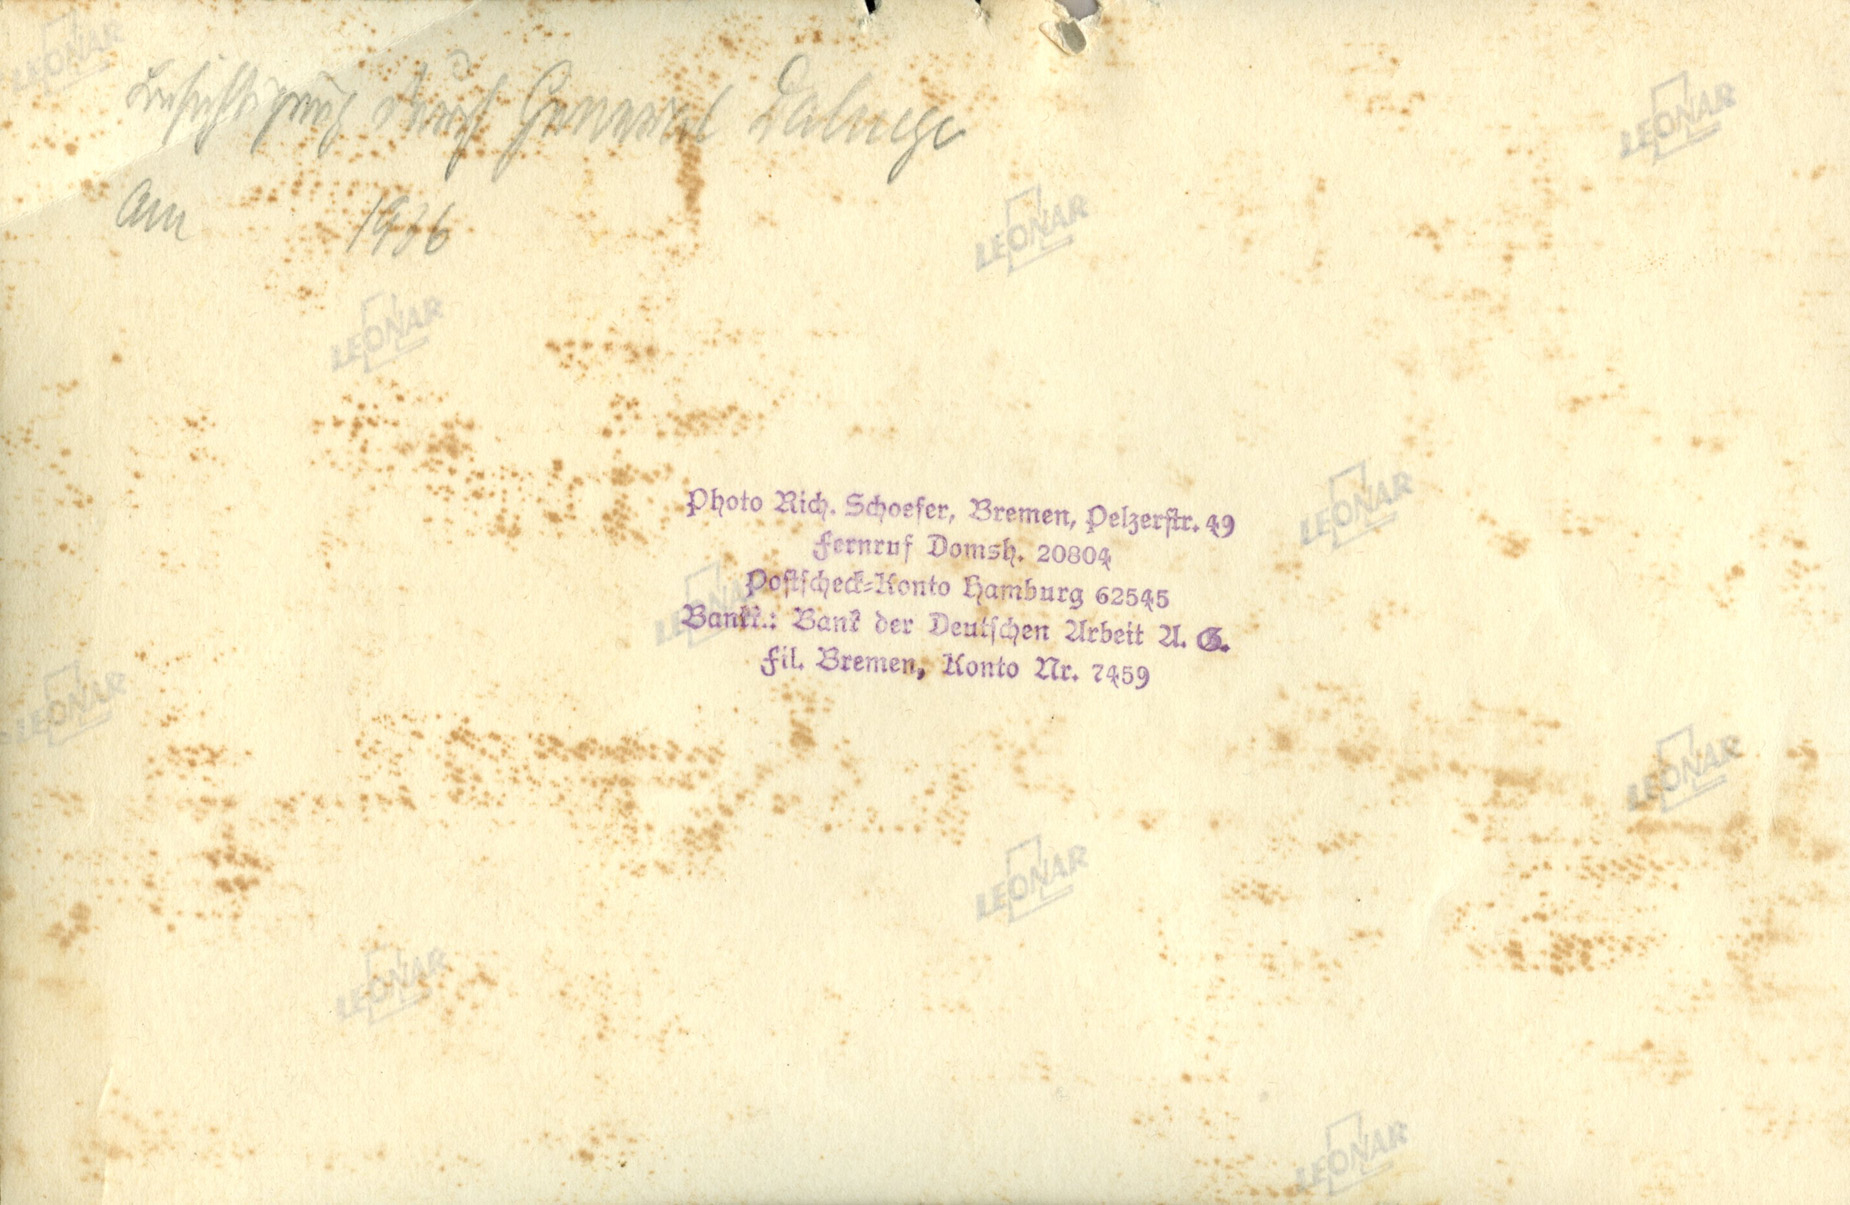 Besichtigung durch General Daluege
am 1936
Photo Rich. Schoefer, Bremen, Pelzerstr. 49
Fernruf Domsh. 20804
Postscheck-Konto Hamburg 62545
Bankk.: Bank der Deutschen Arbeit A. G.
Fil. Bremen, Konto Nr. 7459
LEONAR
LEONAR
LEONAR
LEONAR
LEONAR
LEONAR
LEONAR
LEONAR
LEONAR
LEONAR
LEONAR